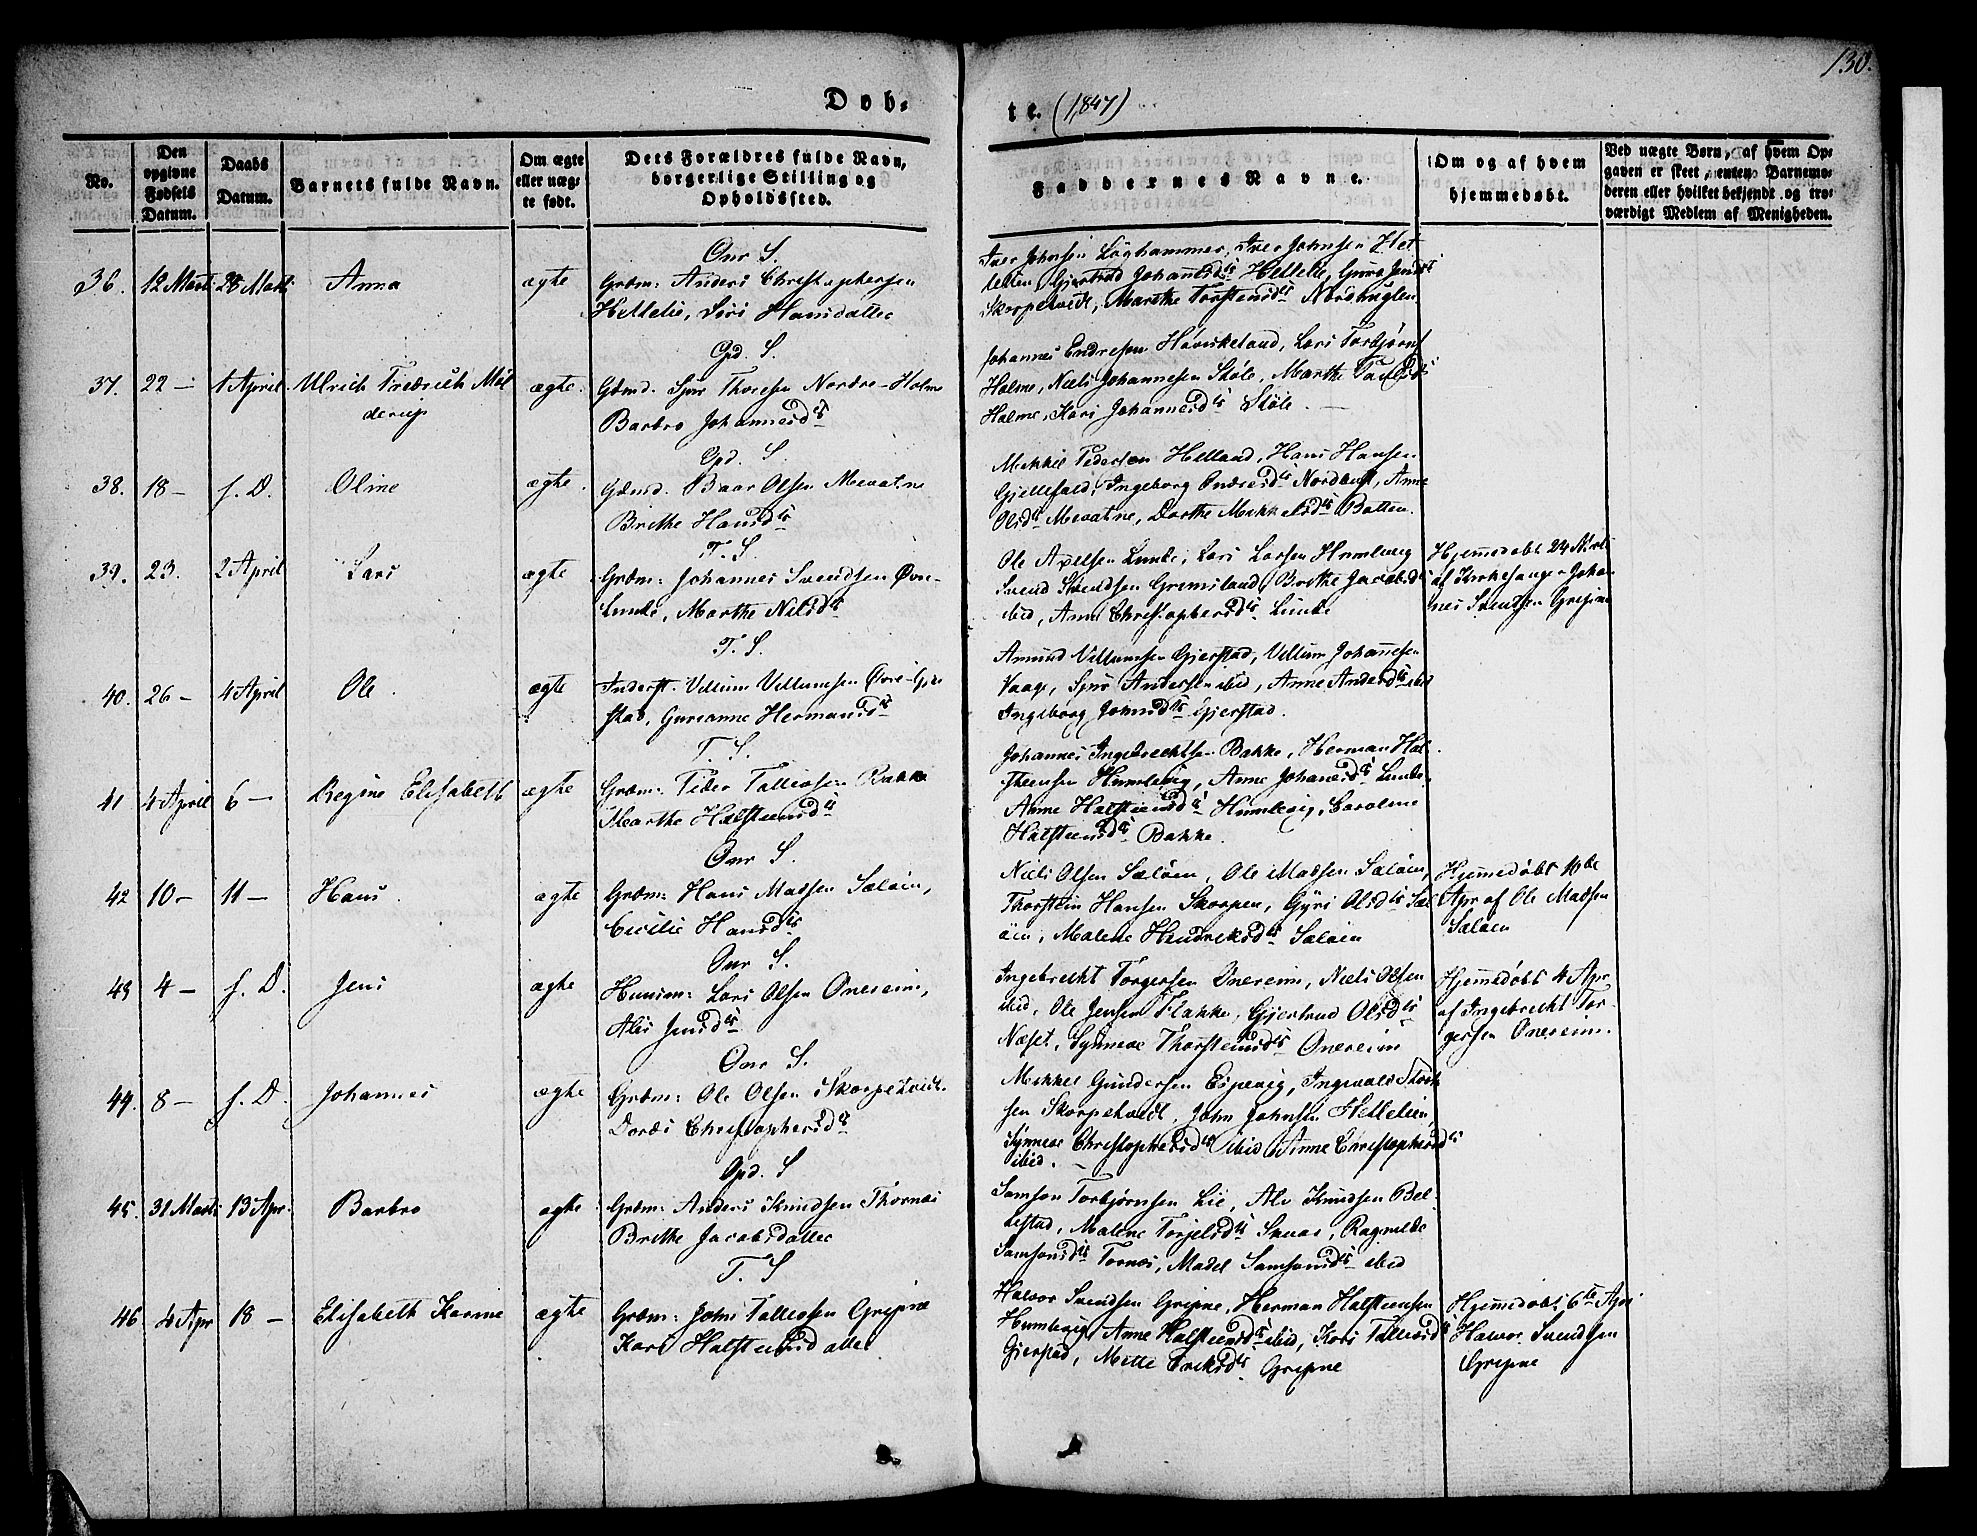 130.
Døb-
te. (1847)
No.
Den opgivne Fødsels Datum.
Daabs Datum.
Barnets fulde Navn.
Om ægte eller uægte født.
Dets Forældres fulde Navn, borgerlige Stilling og Opholdssted.
Faddernes Navne.
Om og af hvem hjemmedøbt.
Ved uægte Børn, af hvem Opgaven er skeet, enten Barnemoderen eller hvilket bekjendt og troværdigt Medlem af Menigheden.
Onr S.
36. 12 Marts 28 Marts Anna ægte Grdm: Anders Christophersen
Hellelie, Siri Hansdatter
Iver Johnsen Løghammer, Iver Johnsen Hel-
lelien, Gjertrud Johansd. Hellelie, Guro Jensd.
Skorpetvedt, Marthe Torstensd. Nordhuglen
Opd. S.
37. 22 — 1 April Ulrich Fredrich Møl ægte. Gbmd. Sjur Thoresen Nordre-Holme
derup Barbro Johannesd.
Johannes Endresen Høviskeland, Lars Torbjørns
Holme, Niels Johannesen Støle, Marthe
Holme, Kari Johannesd. Støle. —
Opd. S.
38. 18 — f. D. Oline ægte. Gbmd. Baar Olsen Mevatne
Brithe Hansd.
Mikkel Pedersen Helland, Hans Hansen
Ingeborg Nordhust, Anne
Olsd. Mevatne, Dorthe Mikkelsd. Batten.
T. S.
39. 23. 2 April Lars ægte Grdm: Johannes Svendsen Øvre-
Lunde, Marthe Nilsd.
Ole Axelsen Lunde, Lars Larsen Humlevig
Svend Svendsen Gremsland, Brithe Jacobsd.
ibid, Anne Christophersd. Lunde
Hjemmedøbt 24 Marts
af Kirkesanger Johan
nes Svendsen Gripne
T. S.
40. 26 — 4 April Ole. ægte Inderst. Villum Villumsen Øvre-Gjer
stad, Gurianne Hermansd.
Amund Villumsen Gjerstad, Villum Johannesen
Vaage, Sjur Andersen ibid, Anne Andersd. ibid
Ingeborg Johnsd. Gjerstad.
T. S.
41 4 April 6 — Regine Elisabeth ægte Grdm: Peder Tollevsen Bakke
Marthe Halsteensd.
Johannes Ingebrechtsen Bakke, Herman Hal-
steensen Humlevig, Anne Johannesd. Lunde,
Anne Halsteensd. Humlevig, Caroline
Halsteensd. Bakke.
Onr S.
42 10 — 11 — Hans. ægte Grdm: Hans Madsen Seløen,
Cecilie Hansd.
Niels Olsen Seløen, Ole Madsen Seløen,
Thorstein Hansen Skorpen, Gyri Olsd. Sel-
øen, Malene Hendriksd. Seløen
Hjemmedøbt 10de
Apr af Ole Madsen
Seløen
Onr S.
43 4 — f. D. Jens ægte Husm: Lars Olsen Onereim,
Alis Jensd.
Ingebrecht Torgersen Onereim, Niels Olsen
ibid, Ole Jensen Flakke, Gjertrud Olsd.
Næset, Synneve Thorsteinsd. Onereim
Hjemmedøbt 4 Apr
af Ingebrecht Tor-
gersen Onereim.
Onr S.
44. 8 — f. D. Johannes ægte Grdm: Ole Olsen Skorpetvedt.
Dorte Christophersd.
Mikkel Gundersen Espevig, Ingvald
sen Skorpetvedt, John Johnsen Hellelien
Synneve Christophersd. ibid, Anne Christophersd.
ibid. —
Opd. S
45. 31 Marts 13 Apr. Barbro ægte Grdm: Anders Knudsen Thornæs
Brithe Jacobsdatter
Samson Torbjørnsen Lie, Alv Knudsen Bel-
lestad, Malene Torjelsd. Ragnilde
Samsonsd. Tornæs, Madel Samsonsd. ibid
T. S
46 4 Apr 18 — Elisabeth Karine ægte Grdm: John Tollevsen Gripne
Kari Halsteensdatter
Halvor Svendsen Gripne, Herman Halsteensen
Humlevig, Anne Halsteensd. ibid, Kari Tollevsd.
Gjerstad, Mette Eriksd. Gripne
Hjemmedøbt 6te Apr
Halvor Svendsen
Gripne